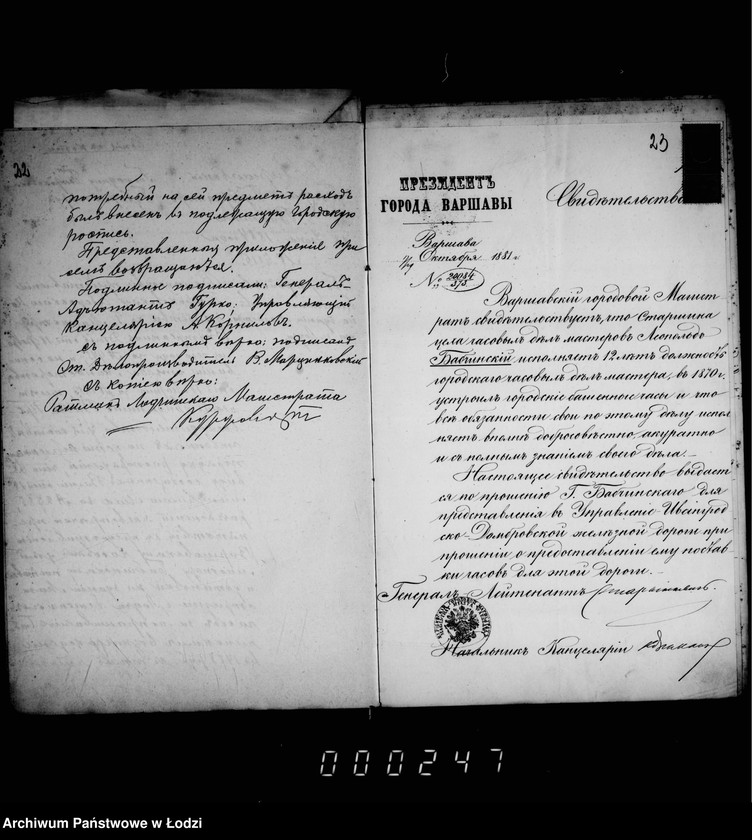 22
потребный на сей предметъ расходъ
былъ внесенъ въ подлежащую городскую
роспись.
Представленныя приложенія при
семъ возвращаются.
Подлинное подписали: Генералъ-
Адъютантъ Гурко; Управляющій
Канцеляріею А Корниловъ.
Съ подлиннымъ вѣрно: подписалъ
От. Дѣлопроизводителя В. Марцинковскій
Съ копіею вѣрно:
Магистрата
23
Свидѣтельство
ПРЕЗИДЕНТЪ
ГОРОДА ВАРШАВЫ
Варшава
Октября 1881 г.
№ 20984
Варшавскій городовой Магист-
ратъ свидѣтельствуетъ, что Старшина
цеха часовыхъ дѣлъ мастеровъ Леопольдъ
Бабчинскій исполняетъ 12 лѣтъ должность
городскаго часовыхъ дѣлъ мастера, въ 1870 г.
устроилъ городскіе башенные часы и что
всѣ обязанности свои по этому дѣлу испол
няетъ вполнѣ добросовѣстно акуратно
и съ полнымъ знаніемъ своего дѣла.
Настоящее свидѣтельство выдает-
ся по прошенію Г. Бабчинскаго для
представленія въ Управленіе Ивангород
ско-Домбровской желѣзной дороги при
прошеніи о предоставленіи ему постав-
ки часовъ для этой дороги.
Генералъ Лейтенантъ
Начальникъ Канцеляріи
000247
Archiwum Państwowe w Łodzi